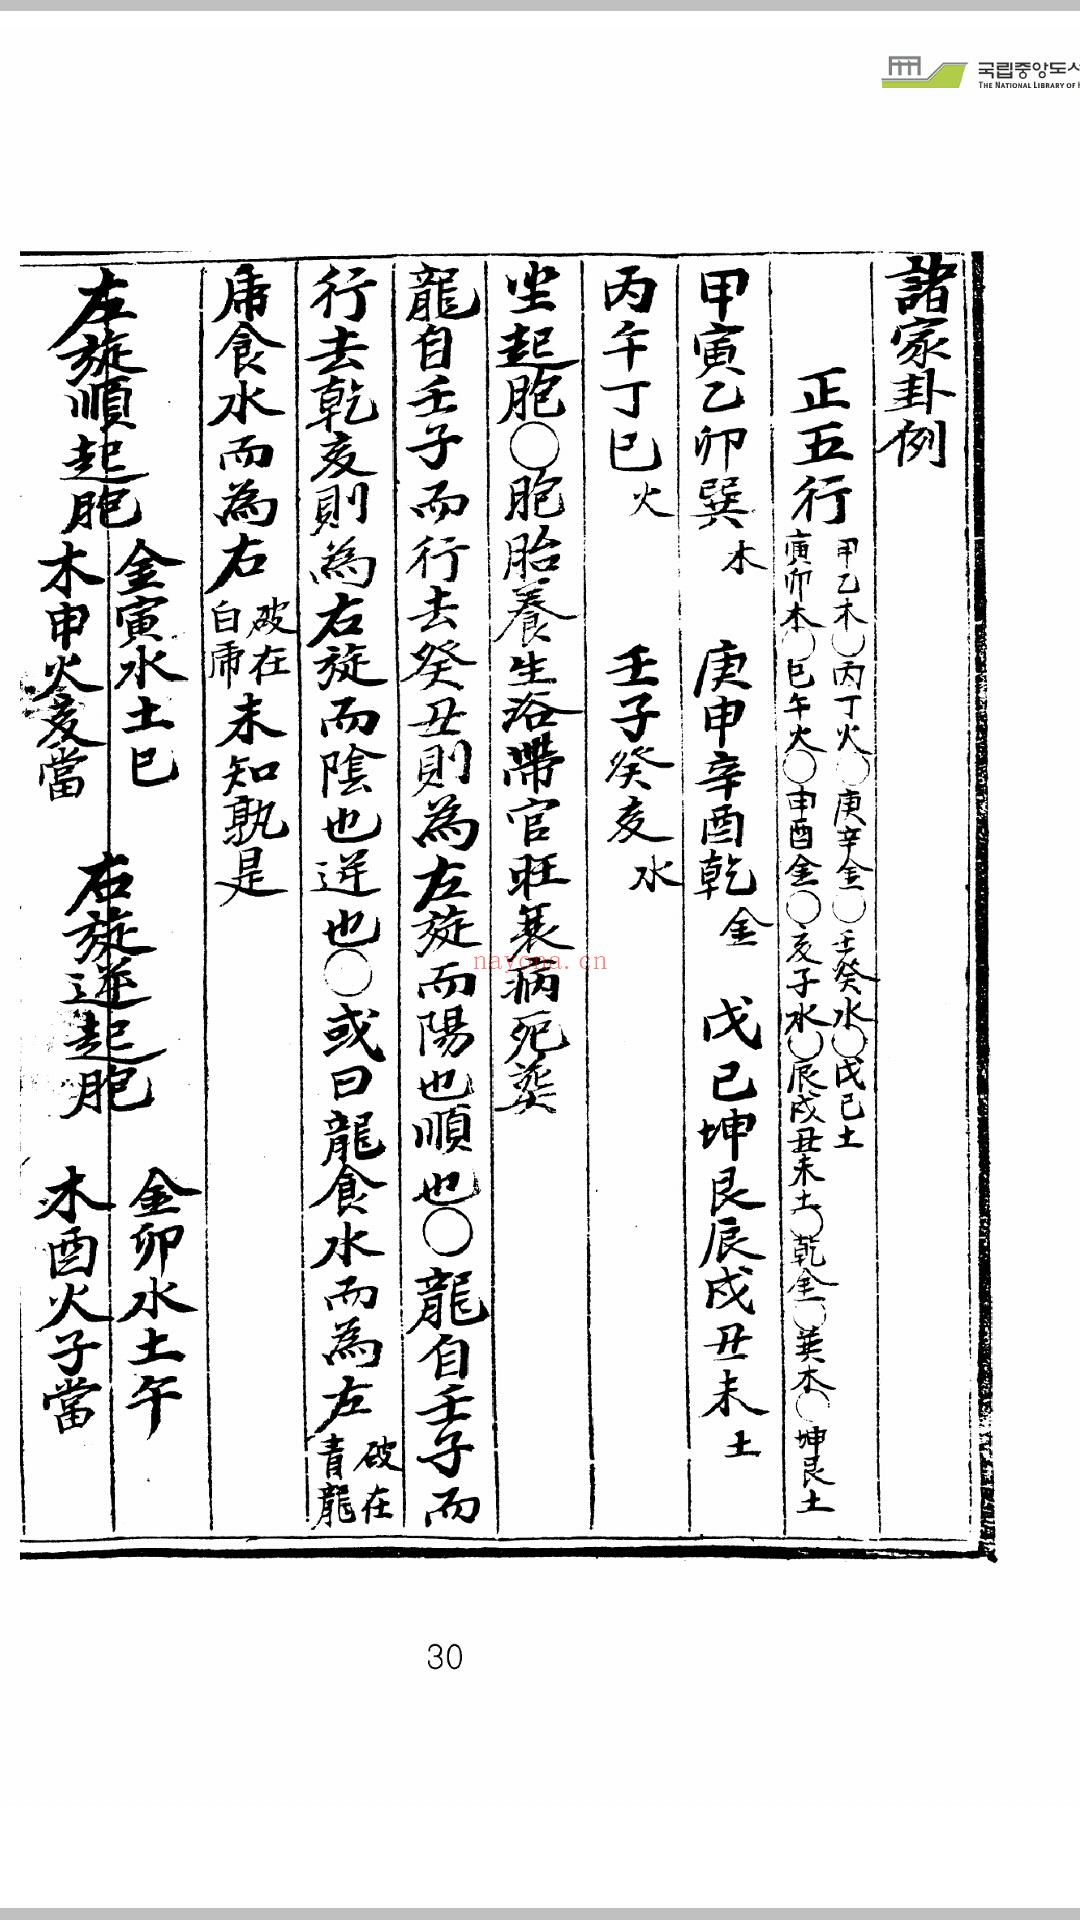 국립중앙도서
THE NATIONAL LIBRARY OF
諸家卦例
正五行 甲乙木〇丙丁火〇庚辛金〇壬癸水〇戊己土
寅卯木〇巳午火〇申酉金〇亥子水〇辰戌丑未土〇乾金〇巽木〇坤艮土
甲寅乙卯巽木 庚申辛酉乾金 戊己坤艮辰戌丑未土
丙午丁巳火 壬子癸亥水
坐起胞〇胞胎養生浴帶官旺衰病死葬
龍自壬子而行去癸丑則為左旋而陽也順也〇龍自壬子而
行去乾亥則為右旋而陰也逆也〇或曰龍食水而為左破在青龍
虎食水而為右破在白虎未知孰是
左旋順起胞 金寅水土巳 右旋逆起胞 金卯水土午
木申火亥當 木酉火子當
nayona.cn
30